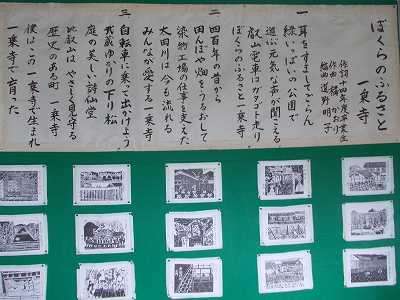 ぼくらのふるさと
一乗寺
作詞 十四年度卒業生
作曲 橘 かお
編曲 道野 明子
一 耳をすましてごらん
緑いっぱいの公園で
遊ぶ元気な声が聞こえる
叡山電車がガタゴト走り
ぼくらのふるさと一乗寺
二 四百年の昔から
田んぼや畑をうるおして
染物工場の仕事を支えた
太田川は今も流れる
みんなが愛する一乗寺
三 自転車に乗って出かけよう
武蔵ゆかりの下り松
庭の美しい詩仙堂
比叡山はやさしく見守る
歴史のある町 一乗寺
僕はこの一乗寺で生まれ
一乗寺で育った